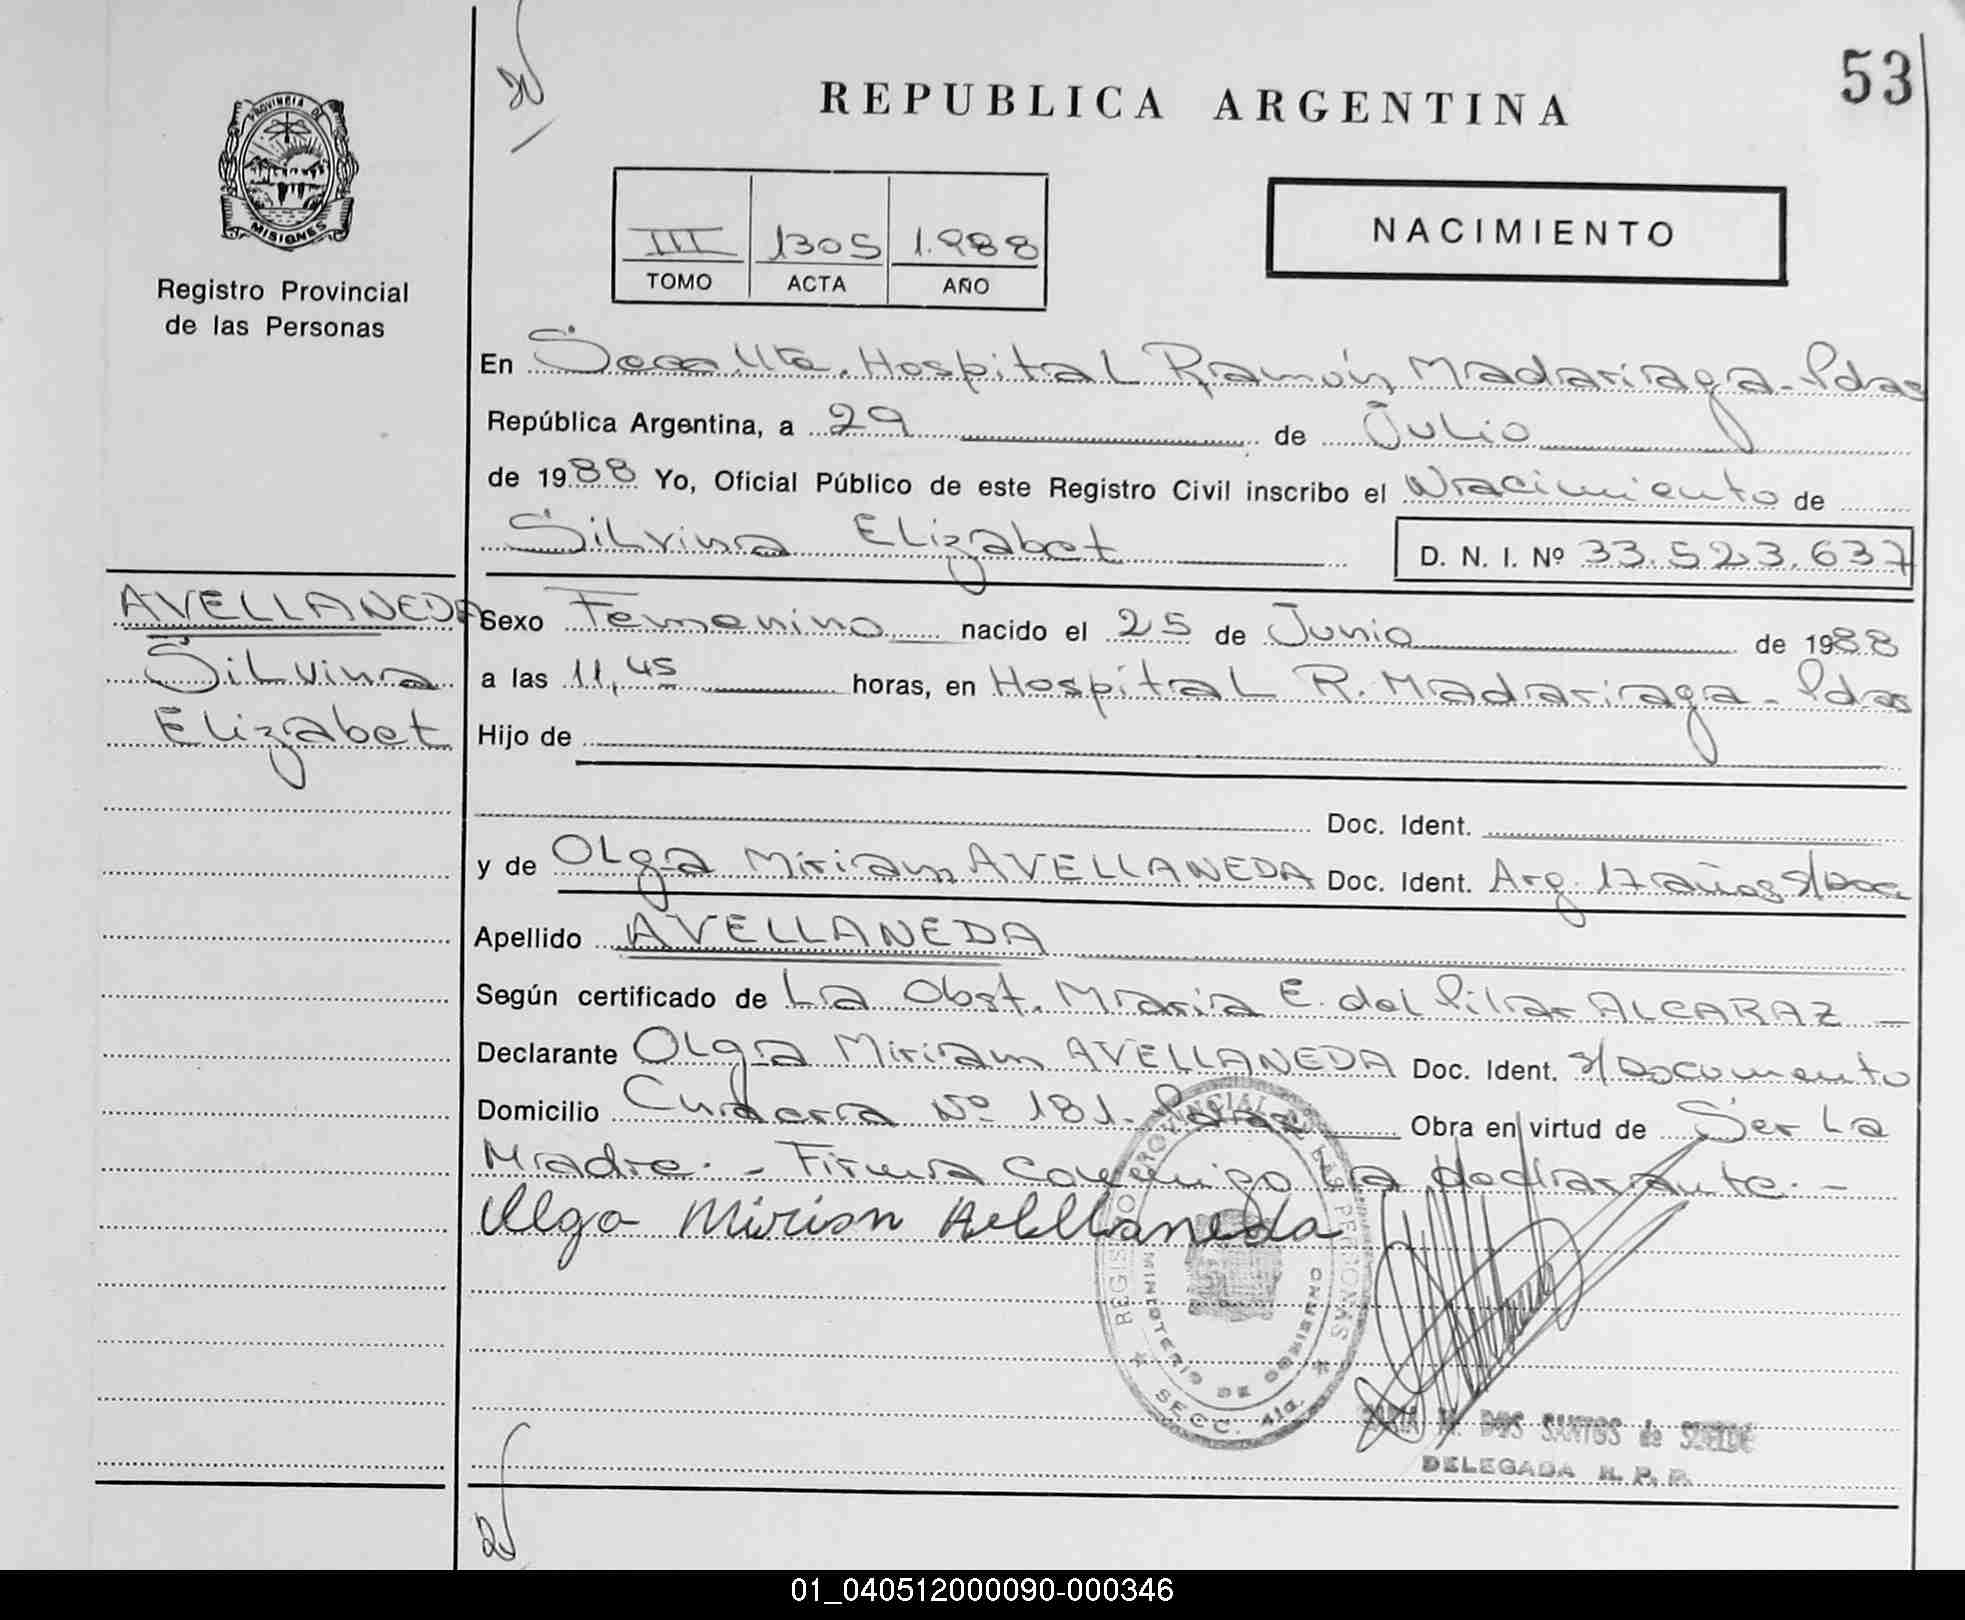 53
REPUBLICA ARGENTINA
PROVINCIA DE
MISIONES
Registro Provincial
de las Personas
III 1305 1.988
TOMO ACTA AÑO
NACIMIENTO
En Hospital Ramón Madariaga - Pdas
República Argentina, a 29 de Julio
de 1988 Yo, Oficial Público de este Registro Civil inscribo el Nacimiento de
Silvina Elizabet D. N. I. Nº 33.523.637
AVELLANEDA
Silvina
Elizabet
Sexo Femenino nacido el 25 de Junio de 1988
a las 11,45 horas, en Hospital R. Madariaga - Pdas
Hijo de
Doc. Ident.
y de Olga Miriam AVELLANEDA Doc. Ident. Arg. 17 años s/Doc
Apellido AVELLANEDA
Según certificado de La Obst. Maria E. del Pilar ALCARAZ -
Declarante Olga Miriam AVELLANEDA Doc. Ident. s/Documento
Domicilio Nº 181. Pdas Obra en virtud de Ser La
Madre. - Firma Conmigo La declarante. -
Olga Miriam Avellaneda
REGISTRO PROVINCIAL DE LAS PERSONAS
MINISTERIO DE GOBIERNO
SECC. 4ta.
M. DOS SANTOS de
DELEGADA R. P. P.
01_040512000090-000346